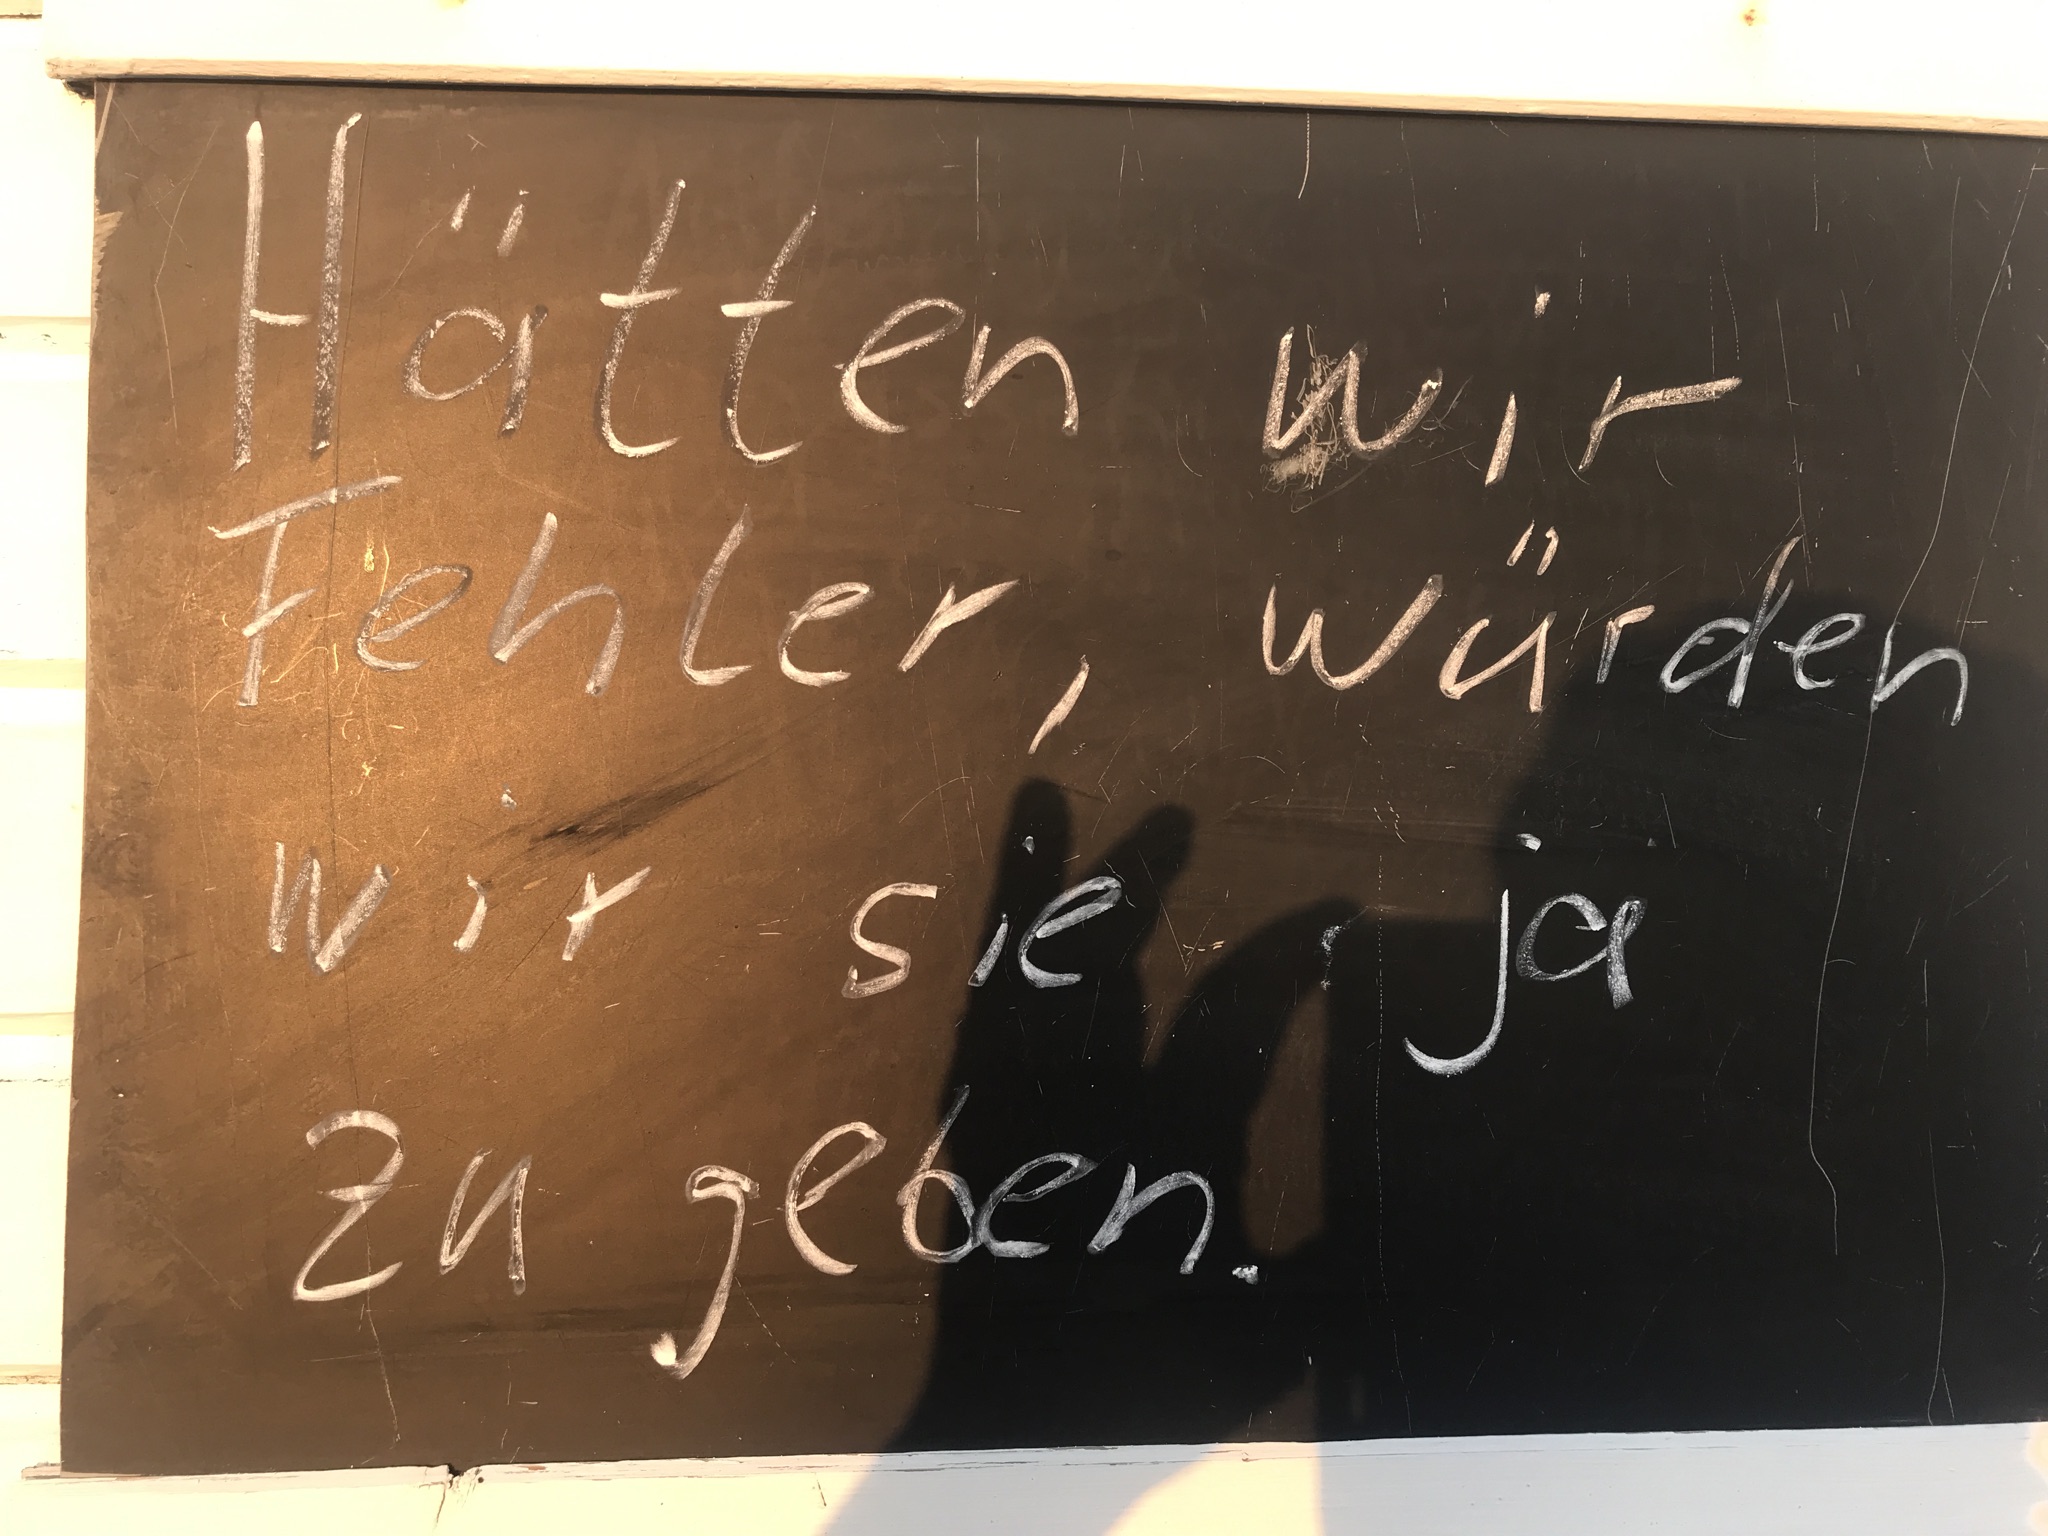 Hätten wir
Fehler, würden
wir sie ja
zu geben.